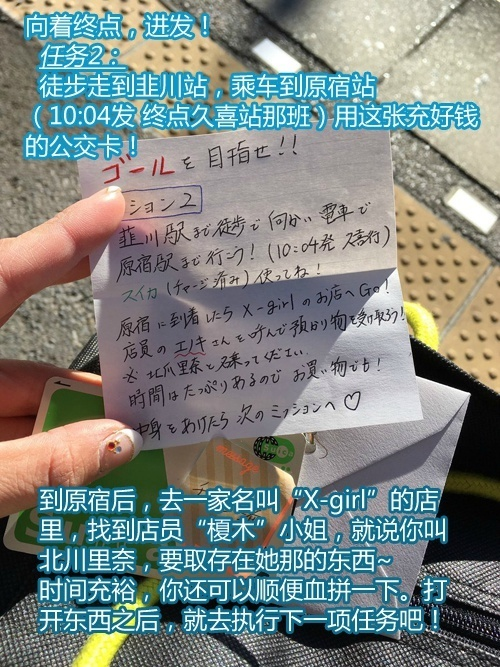 向着终点，进发！
任务2：
徒步走到韭川站，乘车到原宿站
（10:04发 终点久喜站那班）用这张充好钱
的公交卡！
ゴールを目指せ!!
ション2
韮川駅まで徒歩で向かい 電車で
原宿駅まで行こう!(10:04発 久喜行)
スイカ(チャージ済み)使ってね!
原宿に到着したら X-girlのお店へGo!
店員のエノキさんを呼んで預かり物を受け取ろう!
※ 北爪里奈と名乗ってください
時間はたっぷりあるので お買い物でも!
中身をあけたら次のミッションへ♡
到原宿后，去一家名叫“X-girl”的店
里，找到店员“榎木”小姐，就说你叫
北川里奈，要取存在她那的东西~
时间充裕，你还可以顺便血拼一下。打
开东西之后，就去执行下一项任务吧！